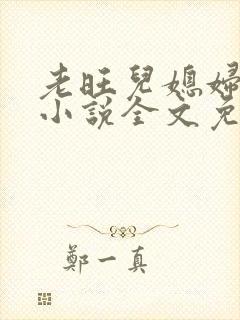 老旺兒媳婦
小說全文免
鄭一真